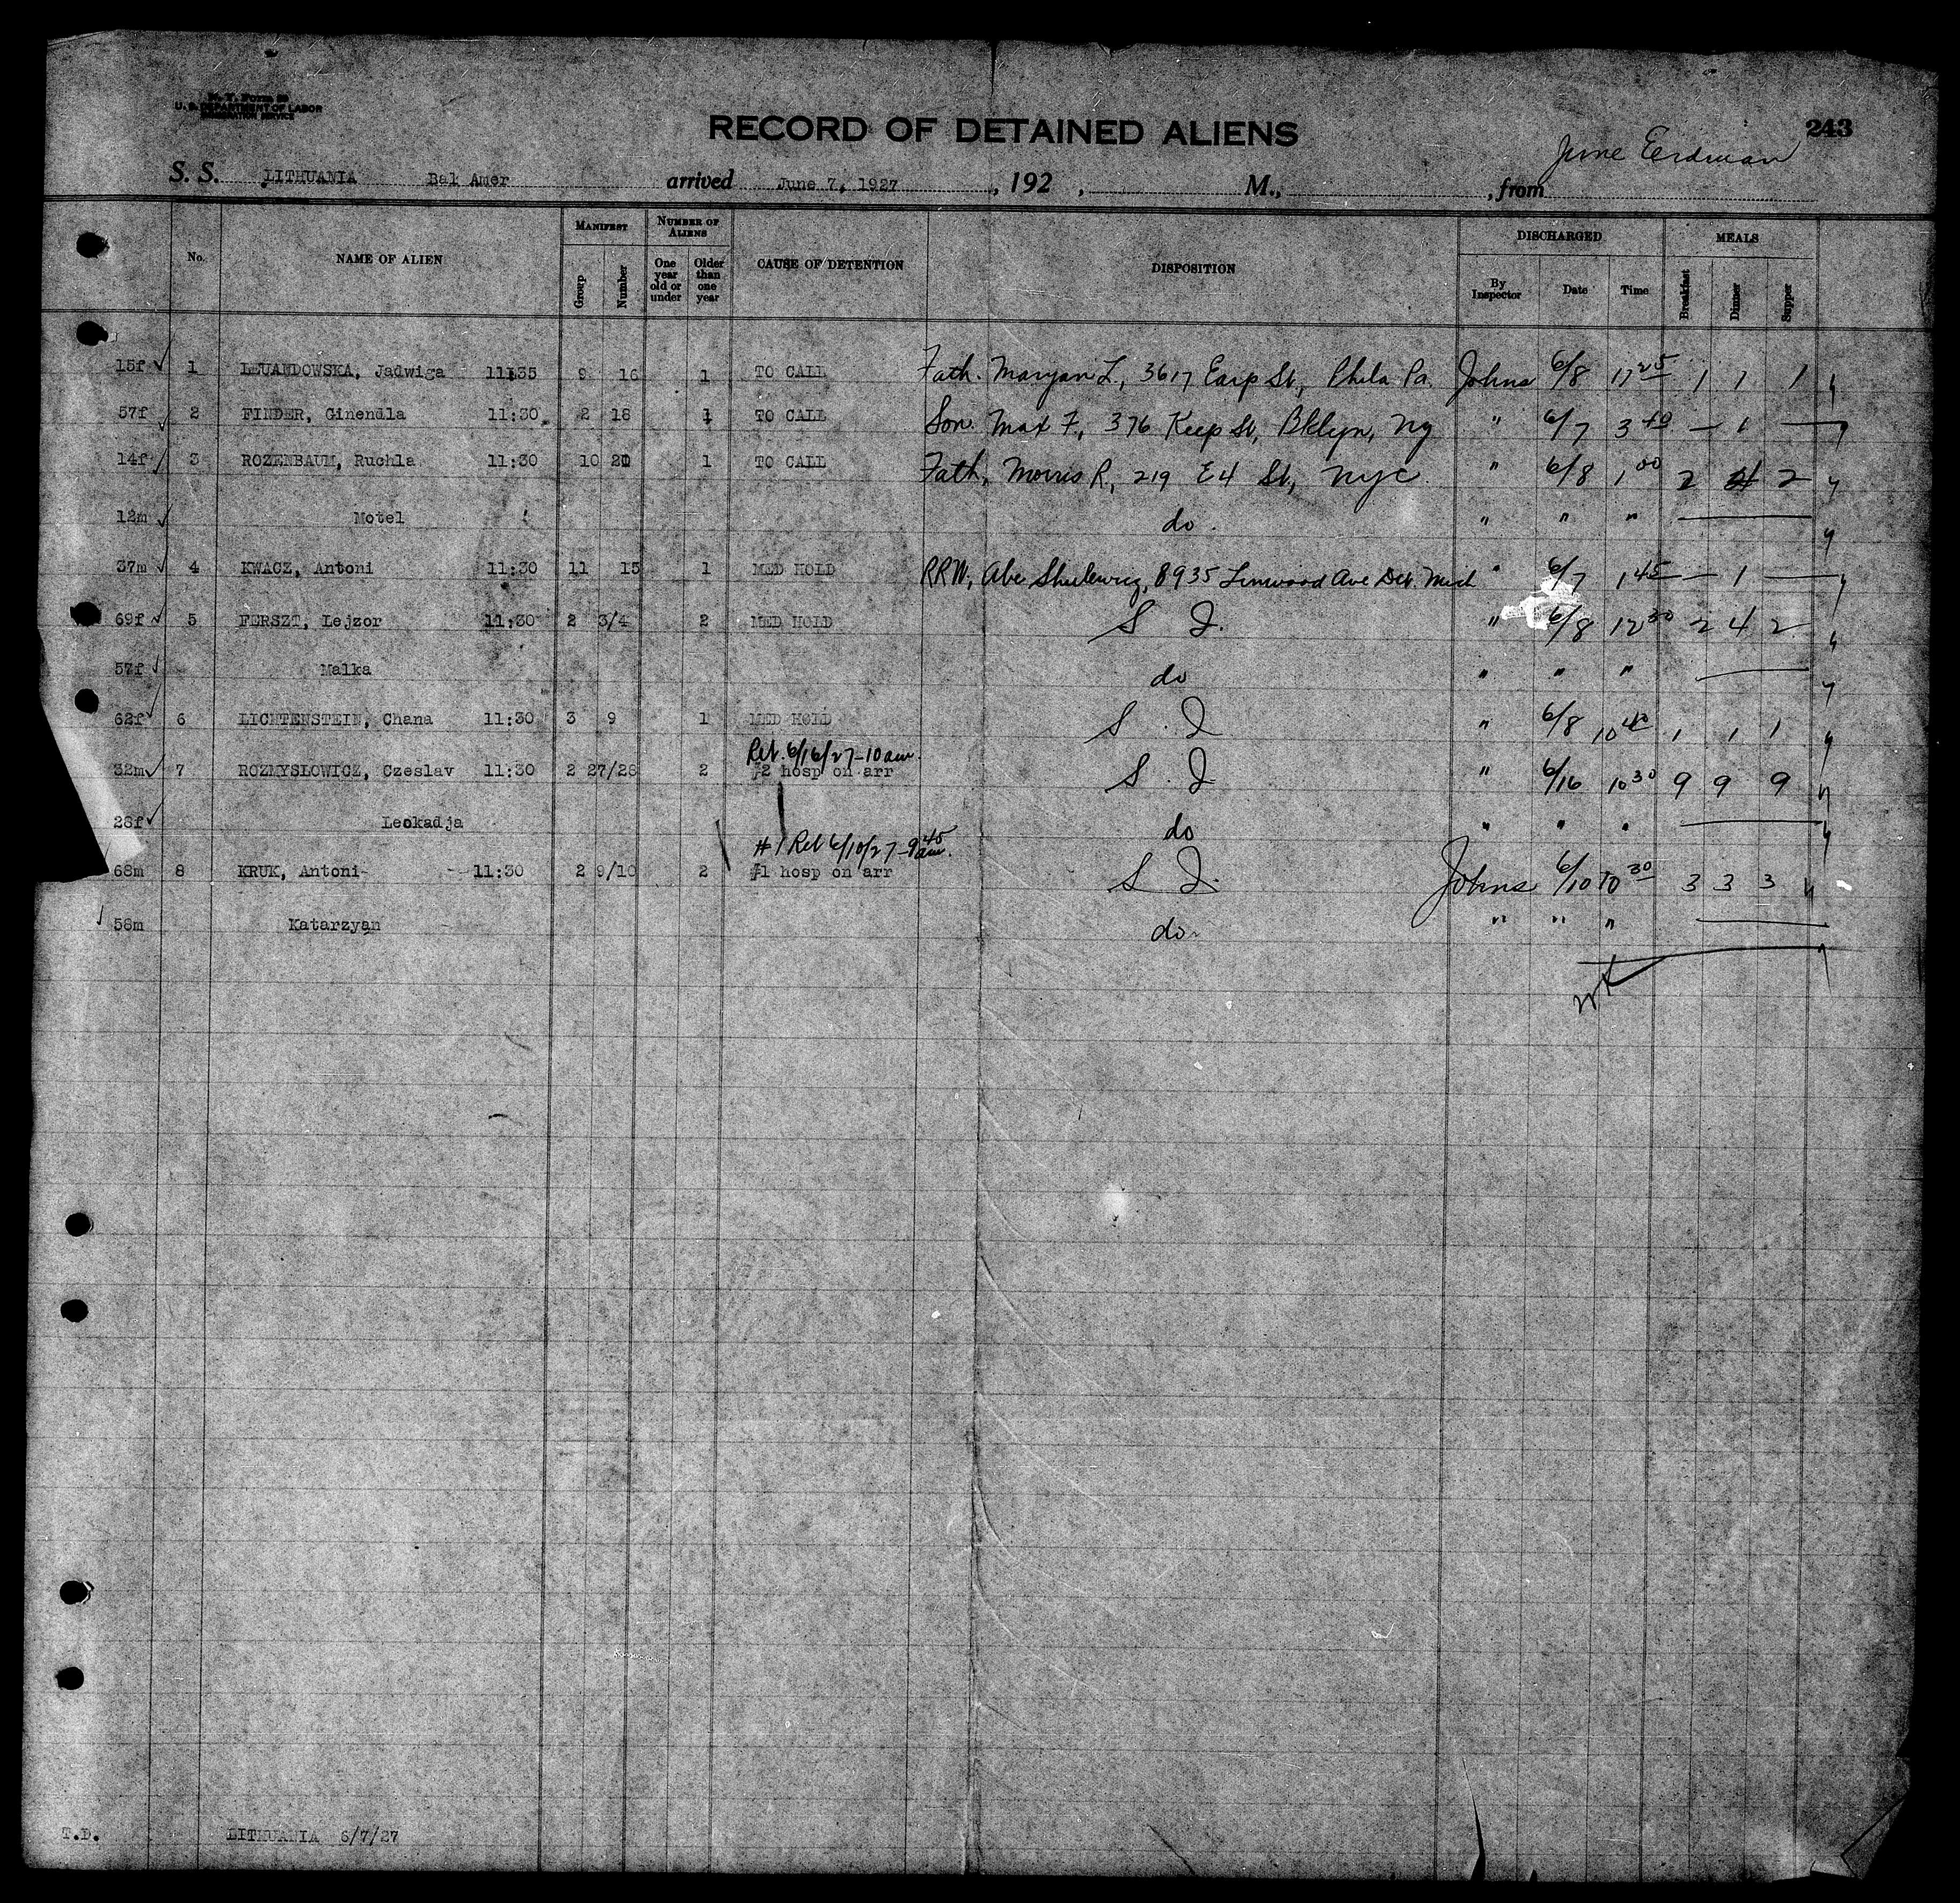 N. Y. Form
U. S. DEPARTMENT OF LABOR
IMMIGRATION SERVICE
RECORD OF DETAINED ALIENS 243
June Erdman
S. S. LITHUANIA Bal Amer arrived June 7, 1927, 192 , M., , from
No. NAME OF ALIEN MANIFEST Group Number NUMBER OF ALIENS One year old or under Older than one year CAUSE OF DETENTION DISPOSITION DISCHARGED By Inspector Date Time MEALS Breakfast Dinner Supper
15f 1 LEUANDOWSKA, Jadwiga 11:35 9 16 1 TO CALL Fath. Maryan L., 3617 Earp St., Phila Pa. Johns 6/8 12 25 1 1 1
57f 2 FINDER, Ginendla 11:30 2 18 1 TO CALL Son. Max F., 376 Keep St, Bklyn, Ny " 6/7 3 40 — 1 —
14f 3 ROZENBAUM, Ruchla 11:30 10 20 1 TO CALL Fath, Morris R, 219 E 4 St, NYC " 6/8 1 00 2 4 2
12m Motel do " " "
37m 4 KWACZ, Antoni 11:30 11 15 1 MED HOLD RRW, Abe Shulewicz, 8935 Linwood Ave Det. Mich " 6/7 1 45 — 1 —
69f 5 FERSZT, Lejzor 11:30 2 3/4 2 MED HOLD S I. " 6/8 12 30 2 4 2
57f Malka do " " "
62f 6 LICHTENSTEIN, Chana 11:30 3 9 1 MED HOLD S. I " 6/8 10 40 1 1 1
Ret. 6/16/27-10am.
32m 7 ROZMYSLOWICZ, Czeslav 11:30 2 27/28 2 #2 hosp on arr S. I " 6/16 10 30 9 9 9
28f Leokadja do " " "
#1 Ret 6/10/27-9 45 am.
68m 8 KRUK, Antoni- 11:30 2 9/10 2 #1 hosp on arr S I. Johns 6/10 10 30 3 3 3
58m Katarzyan do " " "
T.D. LITHUANIA 6/7/27